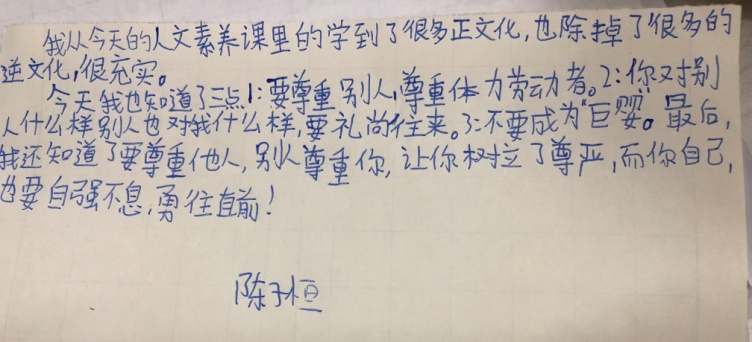 我从今天的人文素养课里的学到了很多正文化,也除掉了很多的
逆文化,很充实。
今天我也知道了三点1:要尊重别人,尊重体力劳动者。2:你对别
人什么样别人也对我什么样,要礼尚往来。3:不要成为“巨婴”。最后,
我还知道了要尊重他人,别人尊重你,让你树立了尊严,而你自己,
也要自强不息,勇往直前!
陈子恒